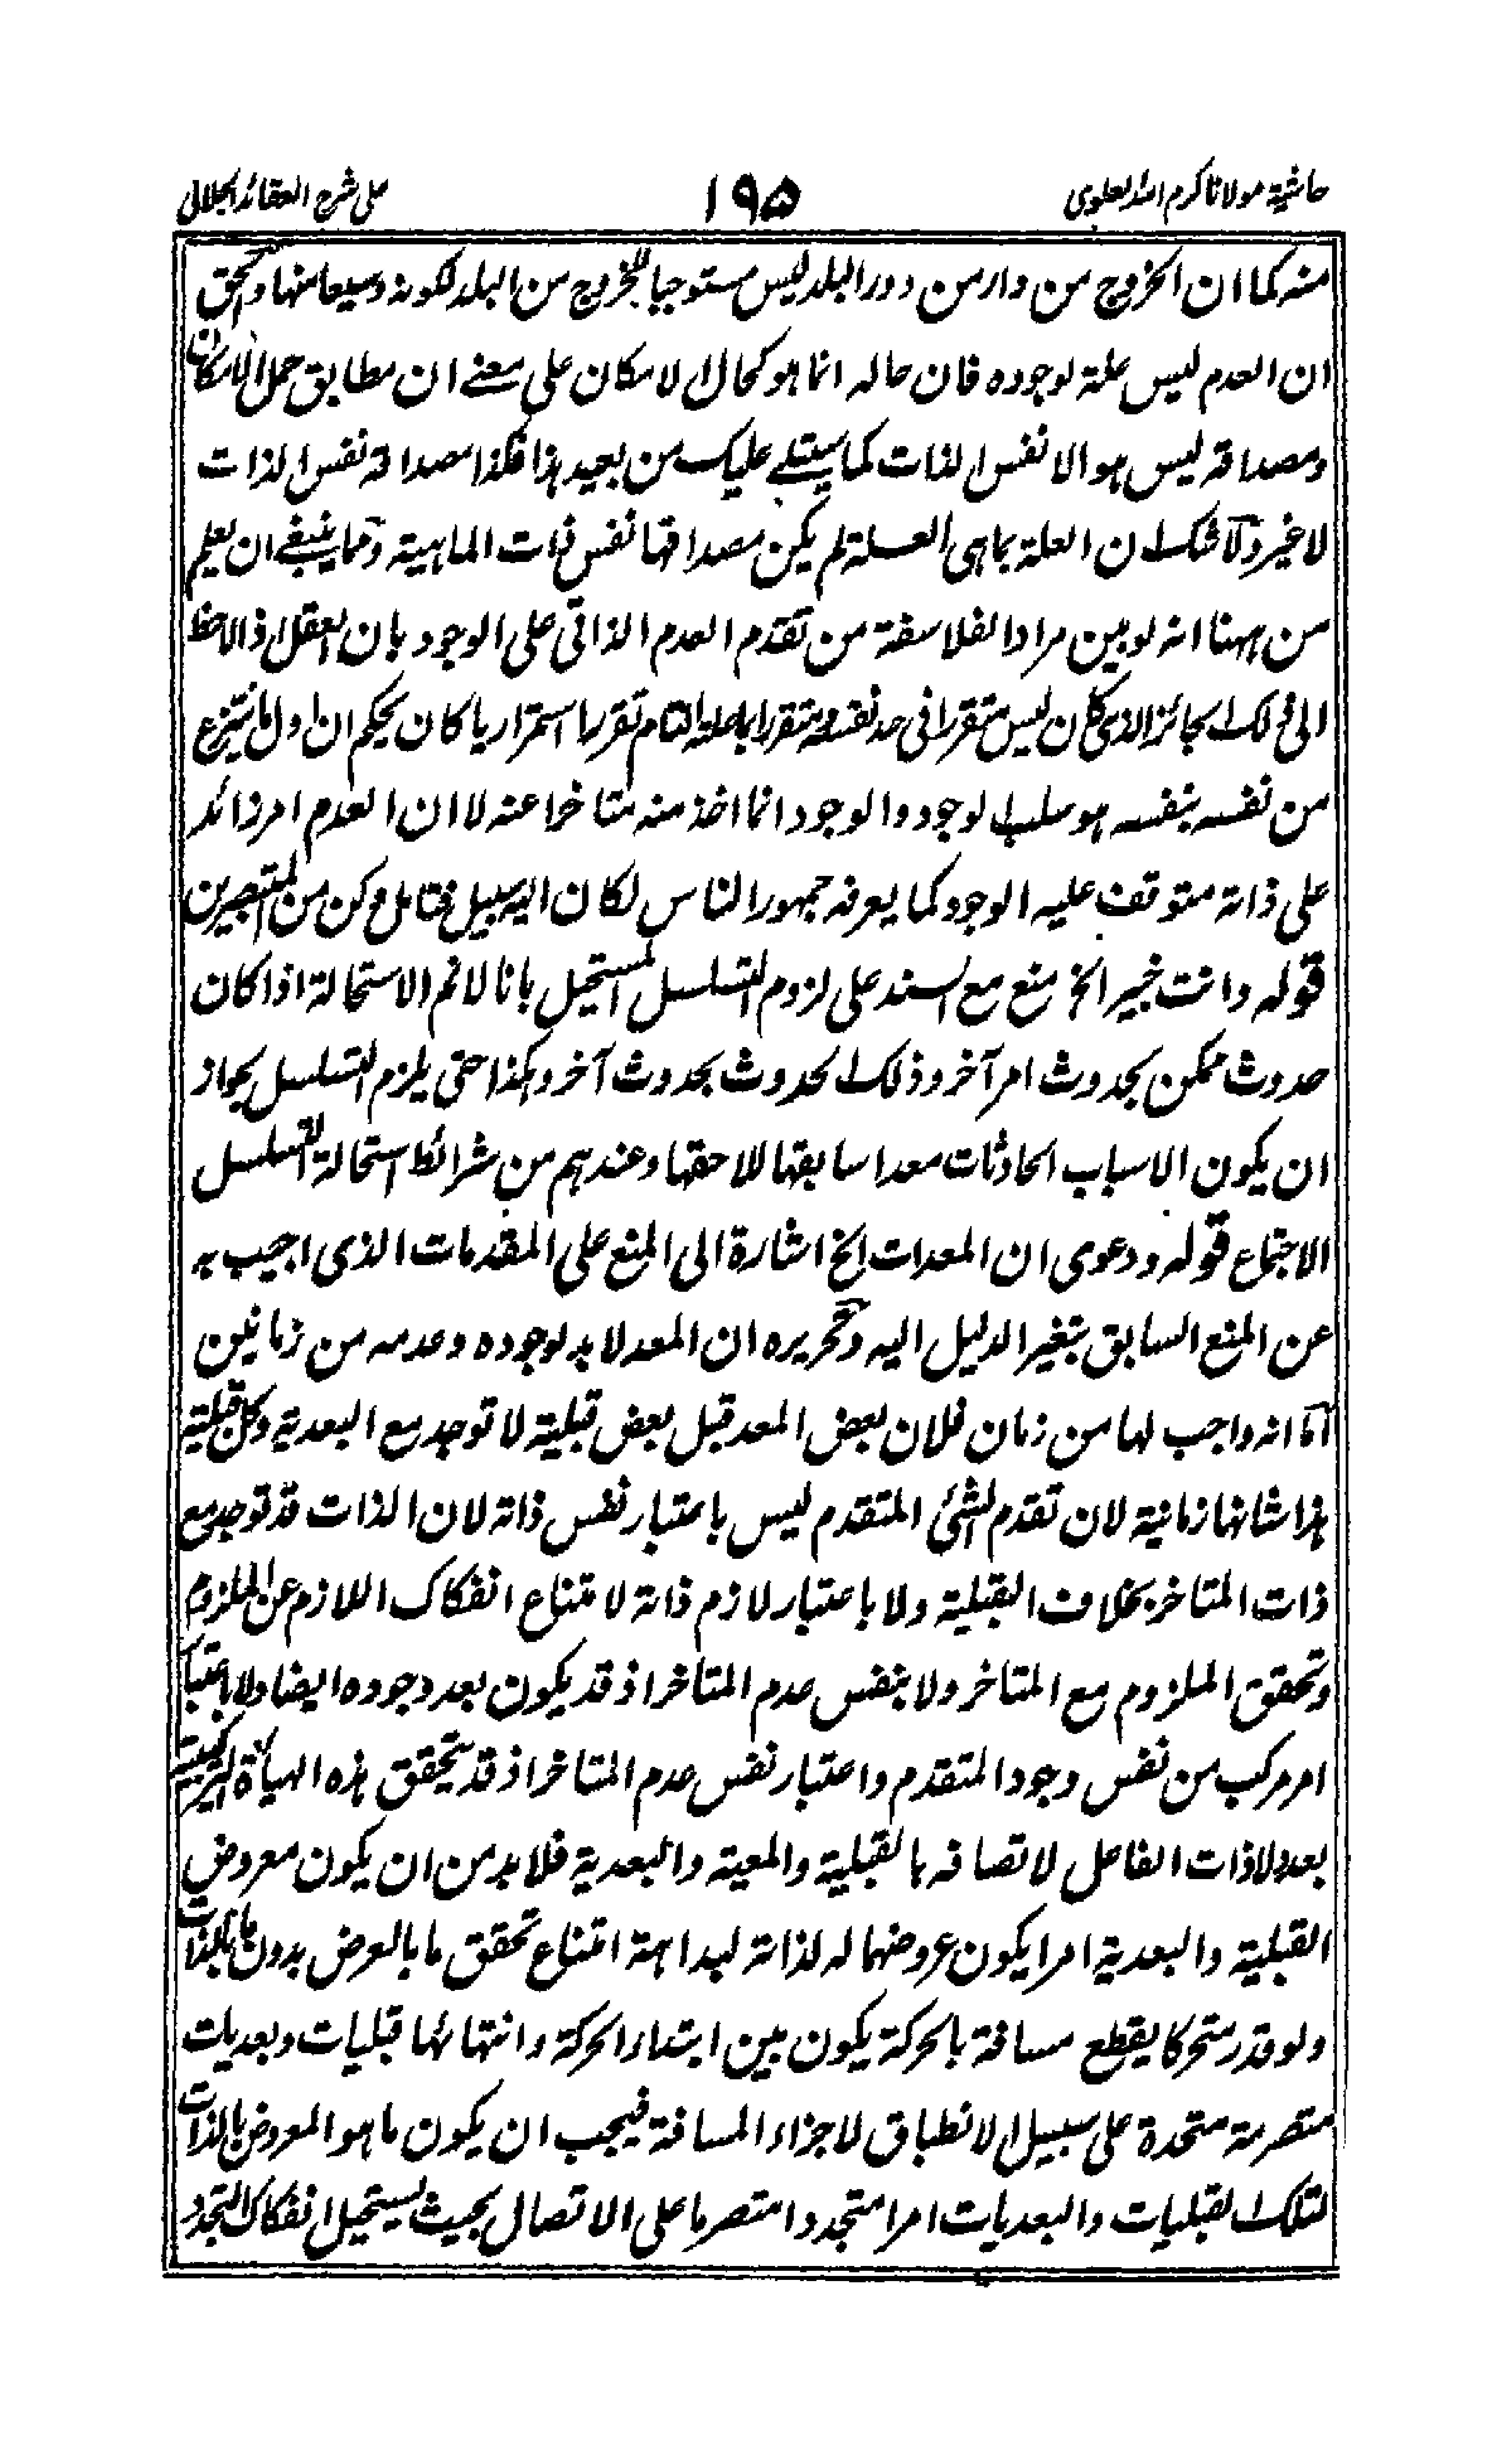 حاشية مولانا كرم الله العلوى
١٩٥
على شرح العقائد الجلالى
منه كما ان الخروج من دار من دور البلد ليس مستوجبا للخروج من البلد لكونه وسيعا منها والحق
ان العدم ليس علة لوجوده فان حاله انما هو كحال الامكان على معنے ان مطابق حمل الامكان
ومصداقه ليس هو الا نفس الذات كما سيتلے عليك من بعيد هذا فكذا مصداقه نفس الذات
لا غير ولا شك ان العلة بما هى العلة لم يكن مصداقها نفس ذات الماهية ومما ينبغے ان يعلم
من ههنا انه لو بين مراد الفلاسفة من تقدم العدم الذاتى على الوجود بان العقل اذا لاحظ
الى ذلك الجائز الذى كان ليس متقررا فى حد نفسه ومتقررا بالعلة التام تقررا استمراريا كان يحكم ان اول ما ينتزع
من نفسه بنفسه هو سلب الوجود والوجود انما اخذ منه متاخرا عنه لا ان العدم امر زائد
على ذاته متوقف عليه الوجود كما يعرفه جمهور الناس لكان اليه سبيل فتامل وكن من المتبصرين
قوله وانت خبير الخ منع مع السند على لزوم التسلسل المستحيل بانا لا نم الاستحالة اذا كان
حدوث ممكن بحدوث امر آخر وذلك الحدوث بحدوث آخر وهكذا حتى يلزم التسلسل بجواز
ان يكون الاسباب الحادثات معدا سابقها للاحقها وعندهم من شرائط استحالة التسلسل
الاجتماع قوله ودعوى ان المعدات الخ اشارة الى المنع على المقدمات الذى اجيب به
عن المنع السابق بتغير الدليل اليه وتحريره ان المعد لا بد لوجوده وعدمه من زمانين
اما انه واجب لها من زمان فلان بعض المعد قبل بعض قبلية لا توجد مع البعدية وكل قبلية
هذا شانها زمانية لان تقدم الشئ المتقدم ليس باعتبار نفس ذاته لان الذات قد توجد مع
ذات المتاخر بخلاف القبلية ولا باعتبار لازم ذاته لامتناع انفكاك اللازم عن الملزوم
وتحقق الملزوم مع المتاخر ولا بنفس عدم المتاخر اذ قد يكون بعد وجوده ايضا ولا باعتبار
امر مركب من نفس وجود المتقدم واعتبار نفس عدم المتاخر اذ قد يتحقق هذه الهيأة التركيبية
بعد ولا ذات الفاعل لاتصافه بالقبلية والمعية والبعدية فلا بد من ان يكون معروض
القبلية والبعدية امرا يكون عروضهما له لذاته لبداهة امتناع تحقق ما بالعرض بدون ما بالذات
ولو قدر متحركا يقطع مسافة بالحركة يكون بين ابتداء الحركة وانتهائها قبليات وبعديات
متصرمة متحدة على سبيل الانطباق لاجزاء المسافة فيجب ان يكون ما هو المعروض بالذات
لتلك القبليات والبعديات امرا متجددا متصرما على الاتصال بحيث يستحيل انفكاك التجدد